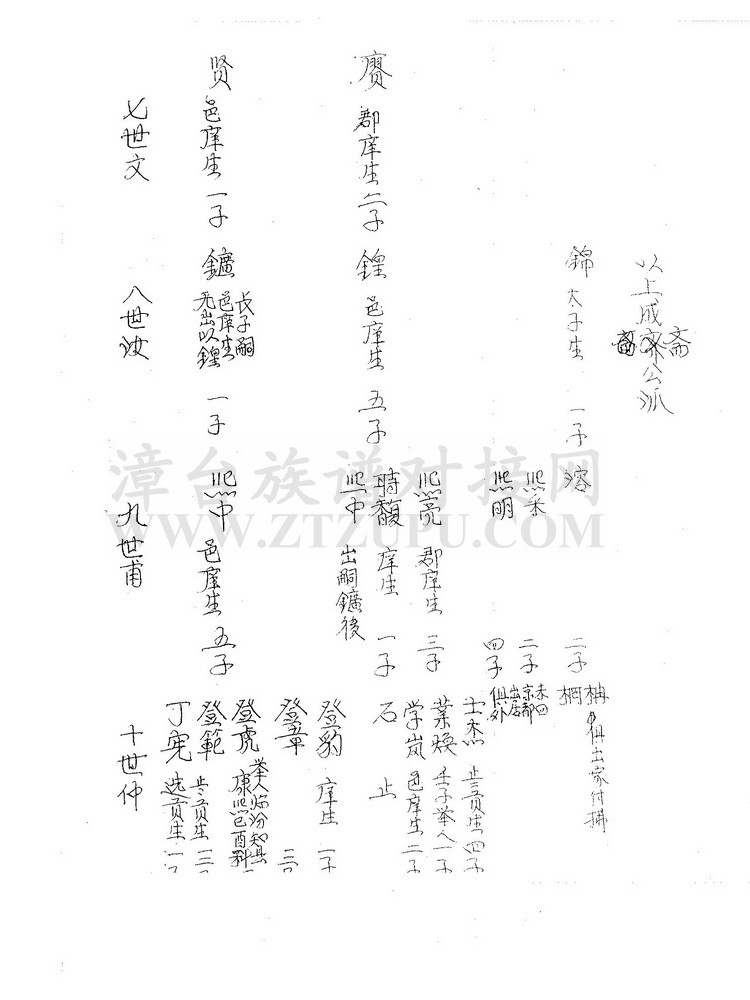 以上成斋公派
斋
錦 太子生 一子
溶 二子
熙采 二子
未回京都出居
熙明 四子
俱外
士杰 貢生 四子
葉煥 壬子举人 一子
学嵐 邑庠生 二子
石 止
賡 郡庠生 二子
鍠 邑庠生 五子
熙亮 郡庠生 三子
時馥 庠生 一子
熙中 出嗣鑛後
登豹 庠生 一子
登章 三子
登虎 举人临汾知县
康熙己酉科
登範 貢生 三子
丁宪 选貢生 一子
贤 邑庠生 一子
鑛 長子嗣
邑庠生
无出以鍠
一子
熙中 邑庠生 五子
七世文
八世汝
九世甫
十世仲
漳台族谱对接网
WWW.ZTZUPU.COM